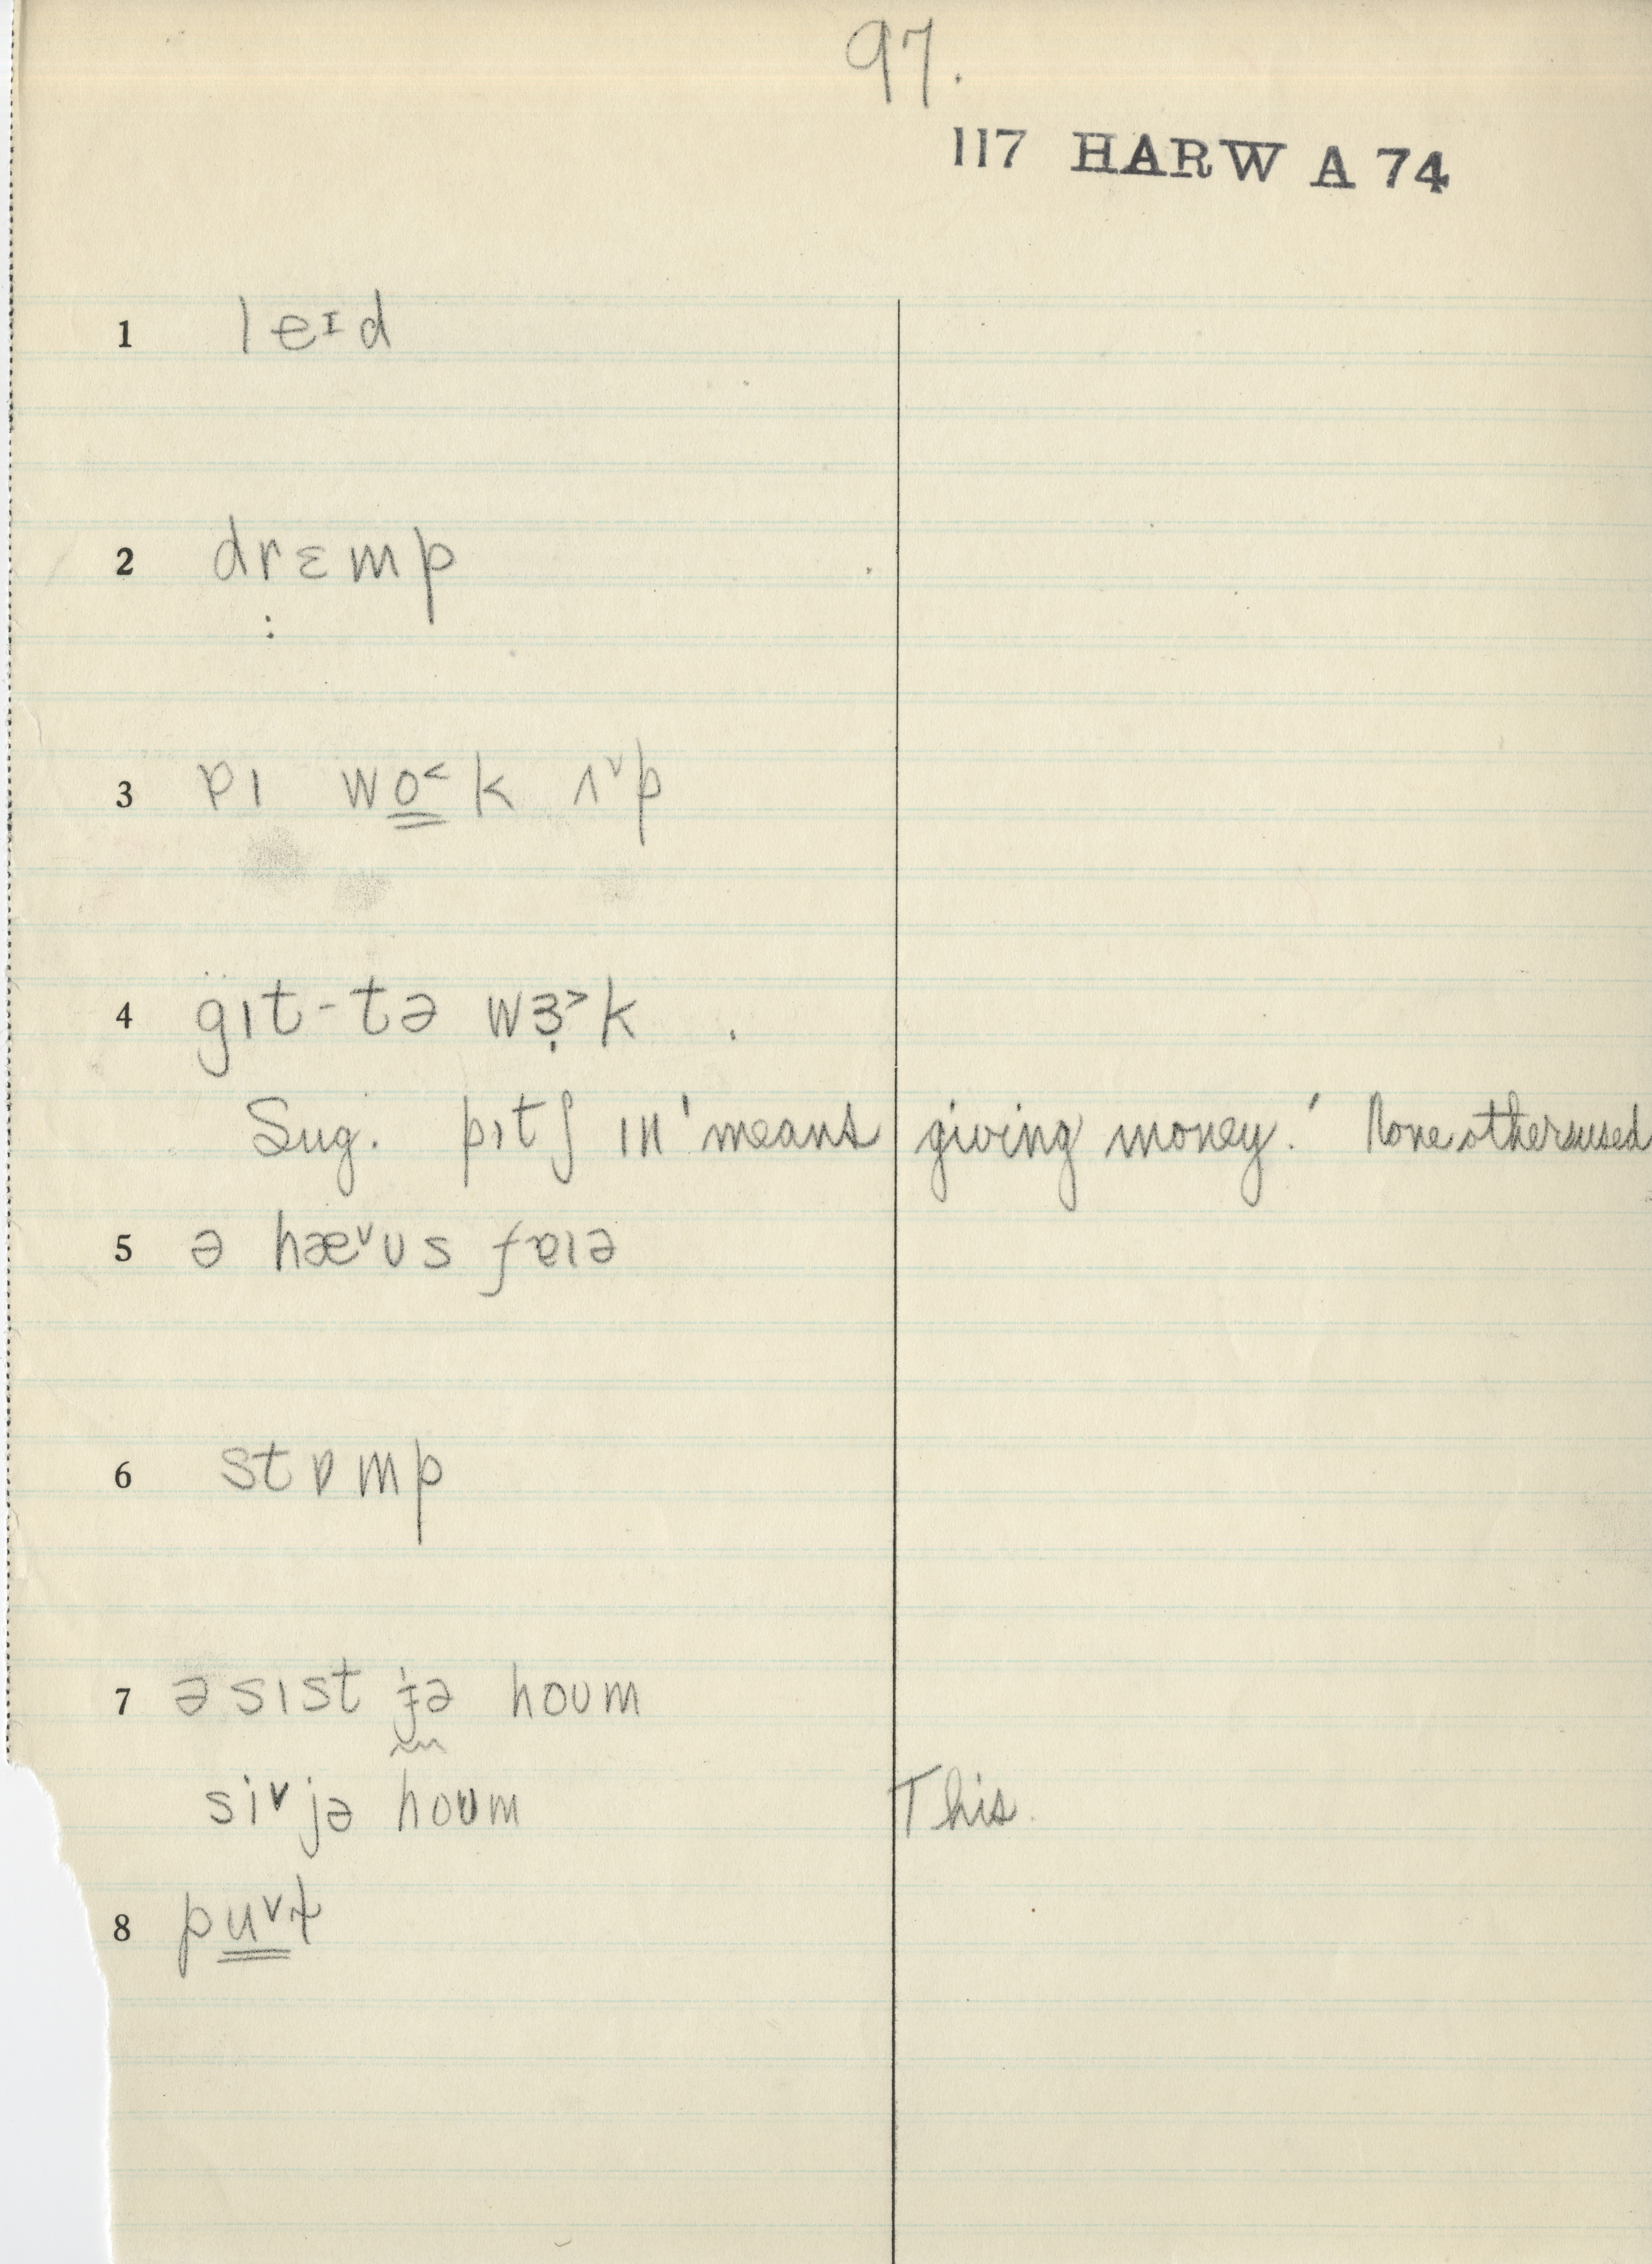 97.
117 HARW A 74
1 leɪd
2 drɛmp
3 ɐɪ wo̳˂k ʌ˅p
4 gɪt-tə wɜ̣˃k .
Sug. pɪtʃ ɪn 'means giving money.' None others used
5 ə hæ˅ʊs fɐɪə
6 stɒmp
7 əsɪst jə hoʊm
si˅ jə hoʊm This.
8 pu̳˅t